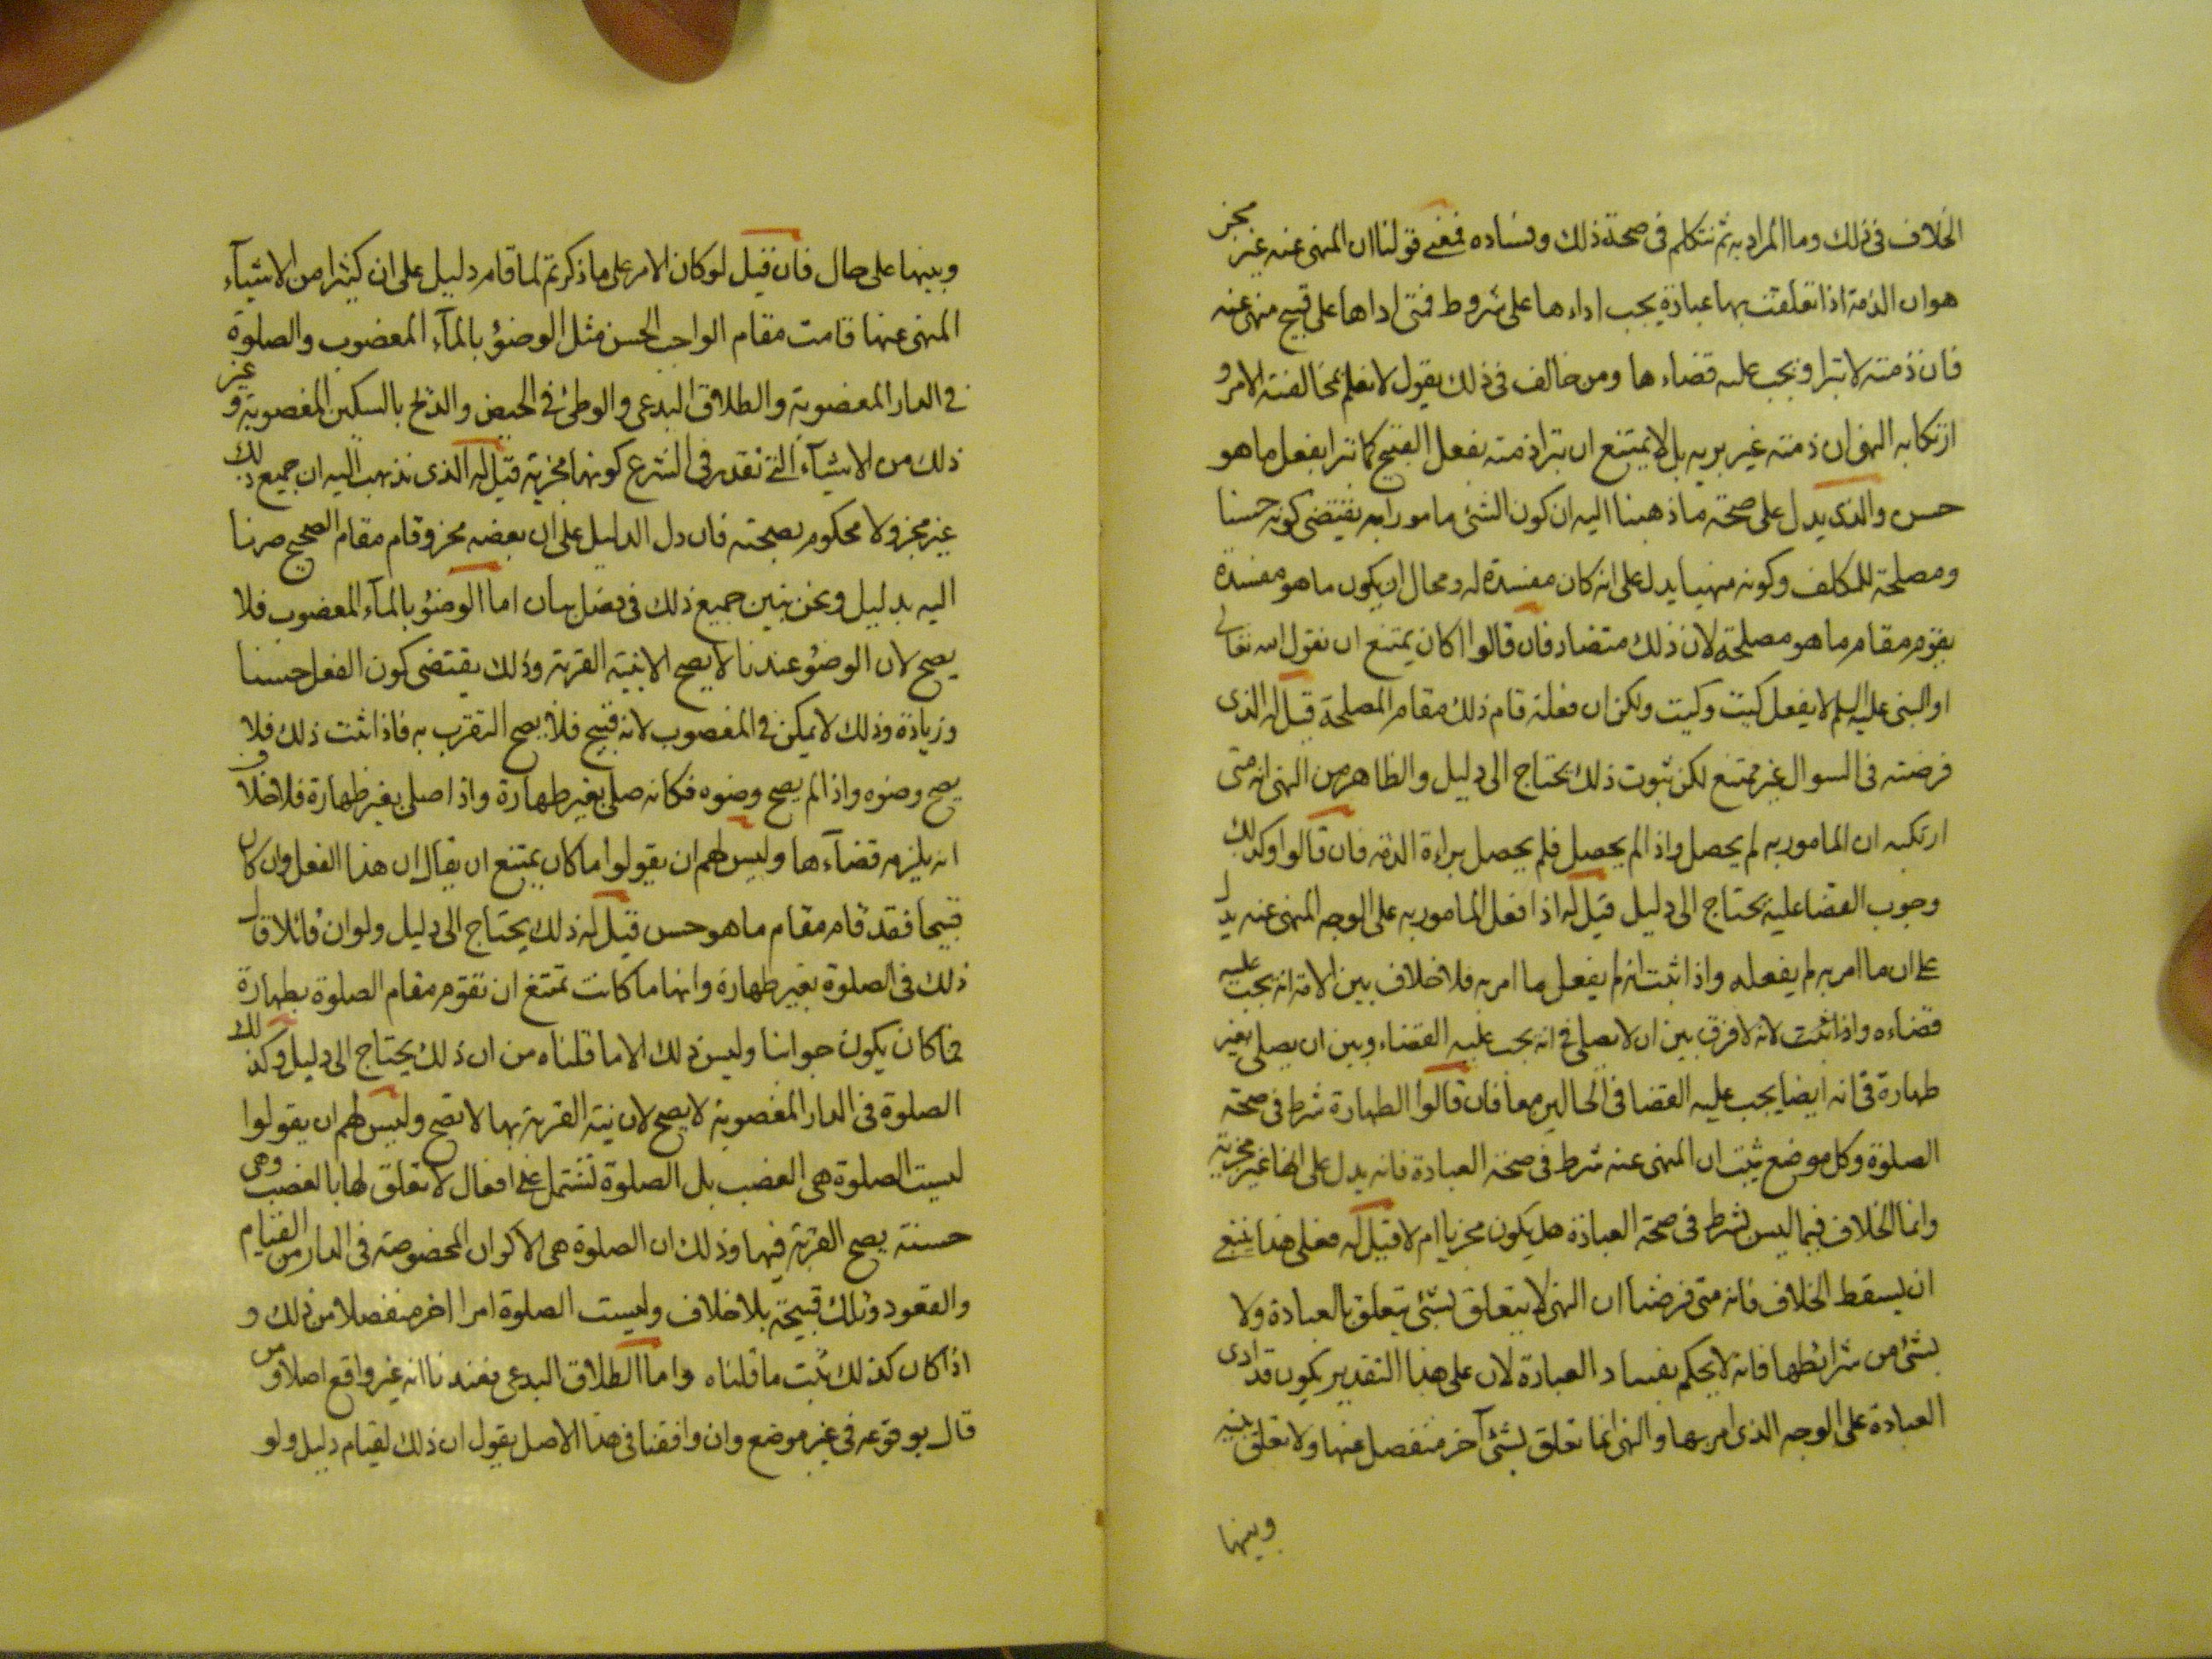 الخلاف فى ذلك وما المراد به ثم نتكلم فى صحة ذلك وفساده فمعنى قولنا ان المنهى عنه غير مجز
هو ان الذمة اذا تعلقت بها عبادة يجب اداءها على شروط فمتى اداها على قبيح منهى عنه
فان ذمته لا تبرا ويجب عليه قضاءها ومن خالف فى ذلك يقول لا نعلم بمخالفته الامر و
ارتكابه النهى ان ذمته غير بريه بل لا يمتنع ان تبرا ذمته بفعل القبيح كما تبرا بفعل ما هو
حسن والذى يدل على صحة ما ذهبنا اليه ان كون الشئ مامورا به يقتضى كونه حسنا
ومصلحة للمكلف وكونه منهيا يدل على انه كان مفسدة له ومحال ان يكون ما هو مفسدة
يقوم مقام ما هو مصلحة لان ذلك متضاد فان قالوا اكان يمتنع ان نقول الله تعالى
او النبى عليه السلم لا يفعل كيت وكيت ولكن ان فعلته قام ذلك مقام المصلحة قيل له الذى
فرضته فى السوال غير ممتنع لكن ثبوت ذلك يحتاج الى دليل والظاهر من النهى انه متى
ارتكبه ان المامور به لم يحصل واذا لم يحصل فلم يحصل براءة الذمة فان قالوا وكذلك
وجوب القضا عليه يحتاج الى دليل قيل له اذا فعل المامور به على الوجه المنهى عنه يدل
على ان ما امر به لم يفعله واذا ثبت انه لم يفعل ما امر به فلا خلاف بين الامة انه يجب عليه
قضاءه واذا ثبت لانه لا فرق بين ان لا يصلى فى انه يجب عليه القضاء وبين ان يصلى بغير
طهارة فى انه ايضا يجب عليه القضا فى الحالين معا فان قالوا الطهارة شرط فى صحة
الصلوة وكل موضع يثبت ان المنهى عنه شرط فى صحة العبادة فانه يدل على انها غير مجزية
وانما الخلاف فيما ليس بشرط فى صحة العبادة هل يكون مجزيا ام لا قيل له فعلى هذا ينبغى
ان يسقط الخلاف فانه متى فرضنا ان النهى لا يتعلق بشئ يتعلق بالعبادة ولا
بشئ من شرائطها فانه لا يحكم بفساد العبادة لان على هذا التقدير يكون قد ادى
العبادة على الوجه الذى امر بها والنهى انما تعلق بشئ آخر منفصل عنها ولا تعلق بينه
وبينها
وبينها على حال فان قيل لو كان الامر على ما ذكرتم لما قام دليل على ان كثيرا من الاشيآء
المنهى عنها قامت مقام الواجب الحسن مثل الوضؤ بالمآء المغصوب والصلوة
فى الدار المغصوبة والطلاق البدعى والوطئ فى الحيض والذبح بالسكين المغصوبة وغير
ذلك من الاشيآء التى تقدر فى الشرع كونها مجزية قيل له الذى نذهب اليه ان جميع ذلك
غير مجز ولا محكوم بصحته فان دل الدليل على ان بعضه مجز وقام مقام الصحيح صرنا
اليه بدليل ونحن نبين جميع ذلك فى فصل بيان اما الوضؤ بالمآء المغصوب فلا
يصح لان الوضؤ عندنا لا يصح الا بنية القربة وذلك يقتضى كون الفعل حسنا
وزيادة وذلك لا يمكن فى المغصوب لانه قبيح فلا يصح التقرب به فاذا ثبت ذلك فلا
يصح وضوه واذا لم يصح وضوه فكانه صلى بغير طهارة واذا صلى بغير طهارة فلا خلاف
انه يلزمه قضآءها وليس لهم ان يقولوا ما كان يمتنع ان يقال ان هذا الفعل وان كان
قبيحا فقد قام مقام ما هو حسن قيل له ذلك يحتاج الى دليل ولو ان قائلا قال
ذلك فى الصلوة بغير طهارة وانها ما كانت تمتنع ان تقوم مقام الصلوة بطهارة
فما كان يكون جوابنا وليس ذلك الا ما قلناه من ان ذلك يحتاج الى دليل وكذلك
الصلوة فى الدار المغصوبة لا يصح لان نية القربة بها لا تصح وليس لهم ان يقولوا
ليست الصلوة هى الغصب بل الصلوة تشتمل على افعال لا تعلق لها بالغصب وهى
حسنة يصح القربة فيها وذلك ان الصلوة هى الاكوان المخصوصة فى الدار من القيام
والقعود وتلك قبيحة بلا خلاف وليست الصلوة امرا اخر منفصلا من ذلك و
اذا كان كذلك ثبت ما قلناه واما الطلاق البدعى فعندنا انه غير واقع اصلا ومن
قال بوقوعه فى غير موضع وان وافقنا فى هذا الاصل يقول ان ذلك لقيام دليل ولو